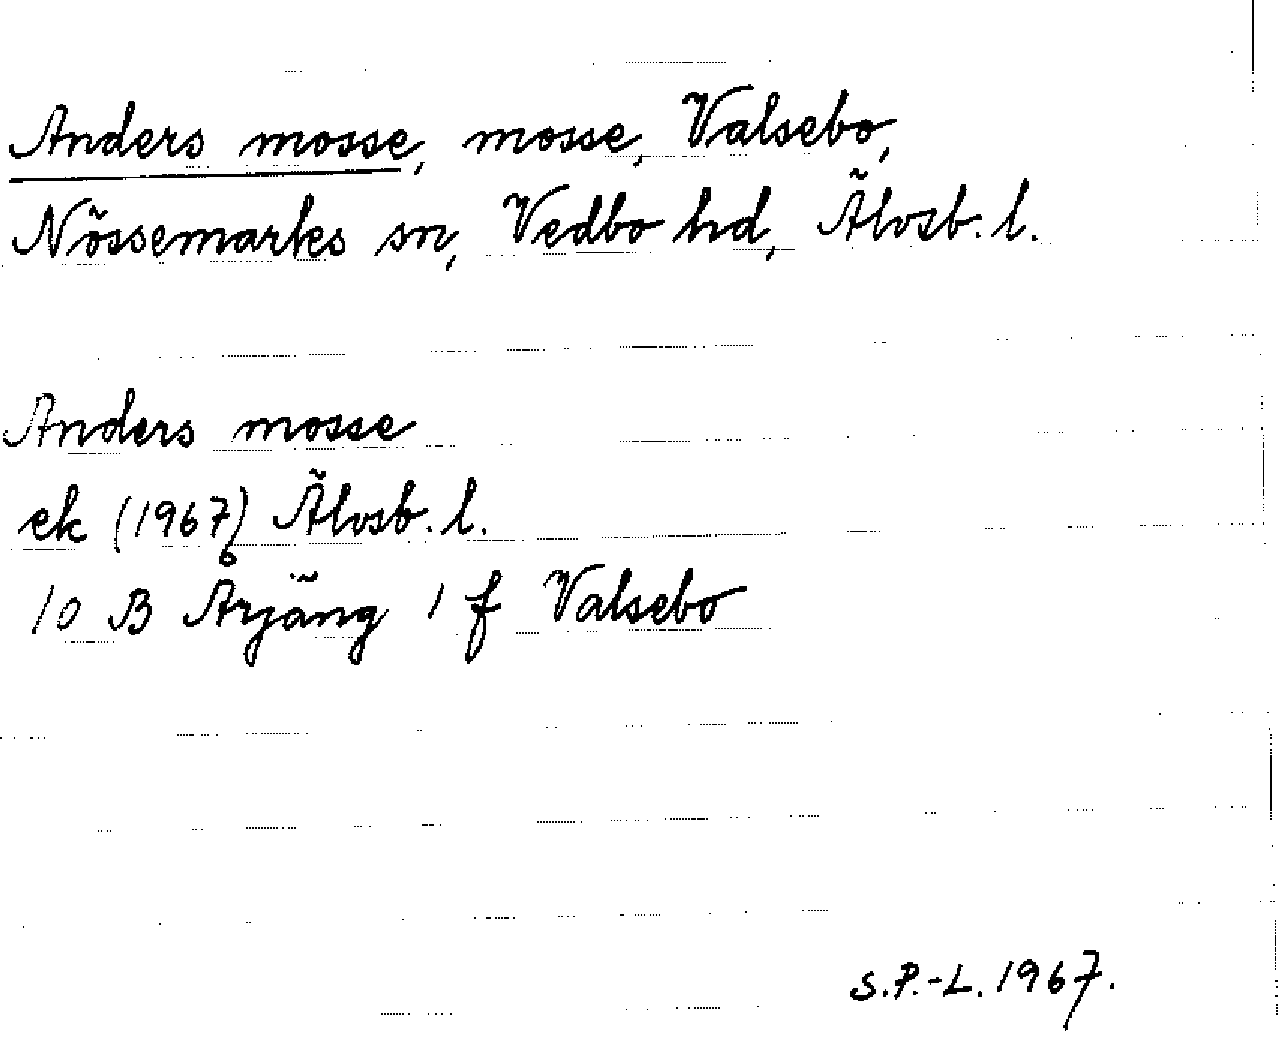 Anders mosse, mosse, Valsebo,
Nössemarks sn, Vedbo hd, Älvsb. l.
Anders mosse
ek (1967) Älvsb. l.
10 B Årjäng 1 f Valsebo
S.P.-L. 1967.